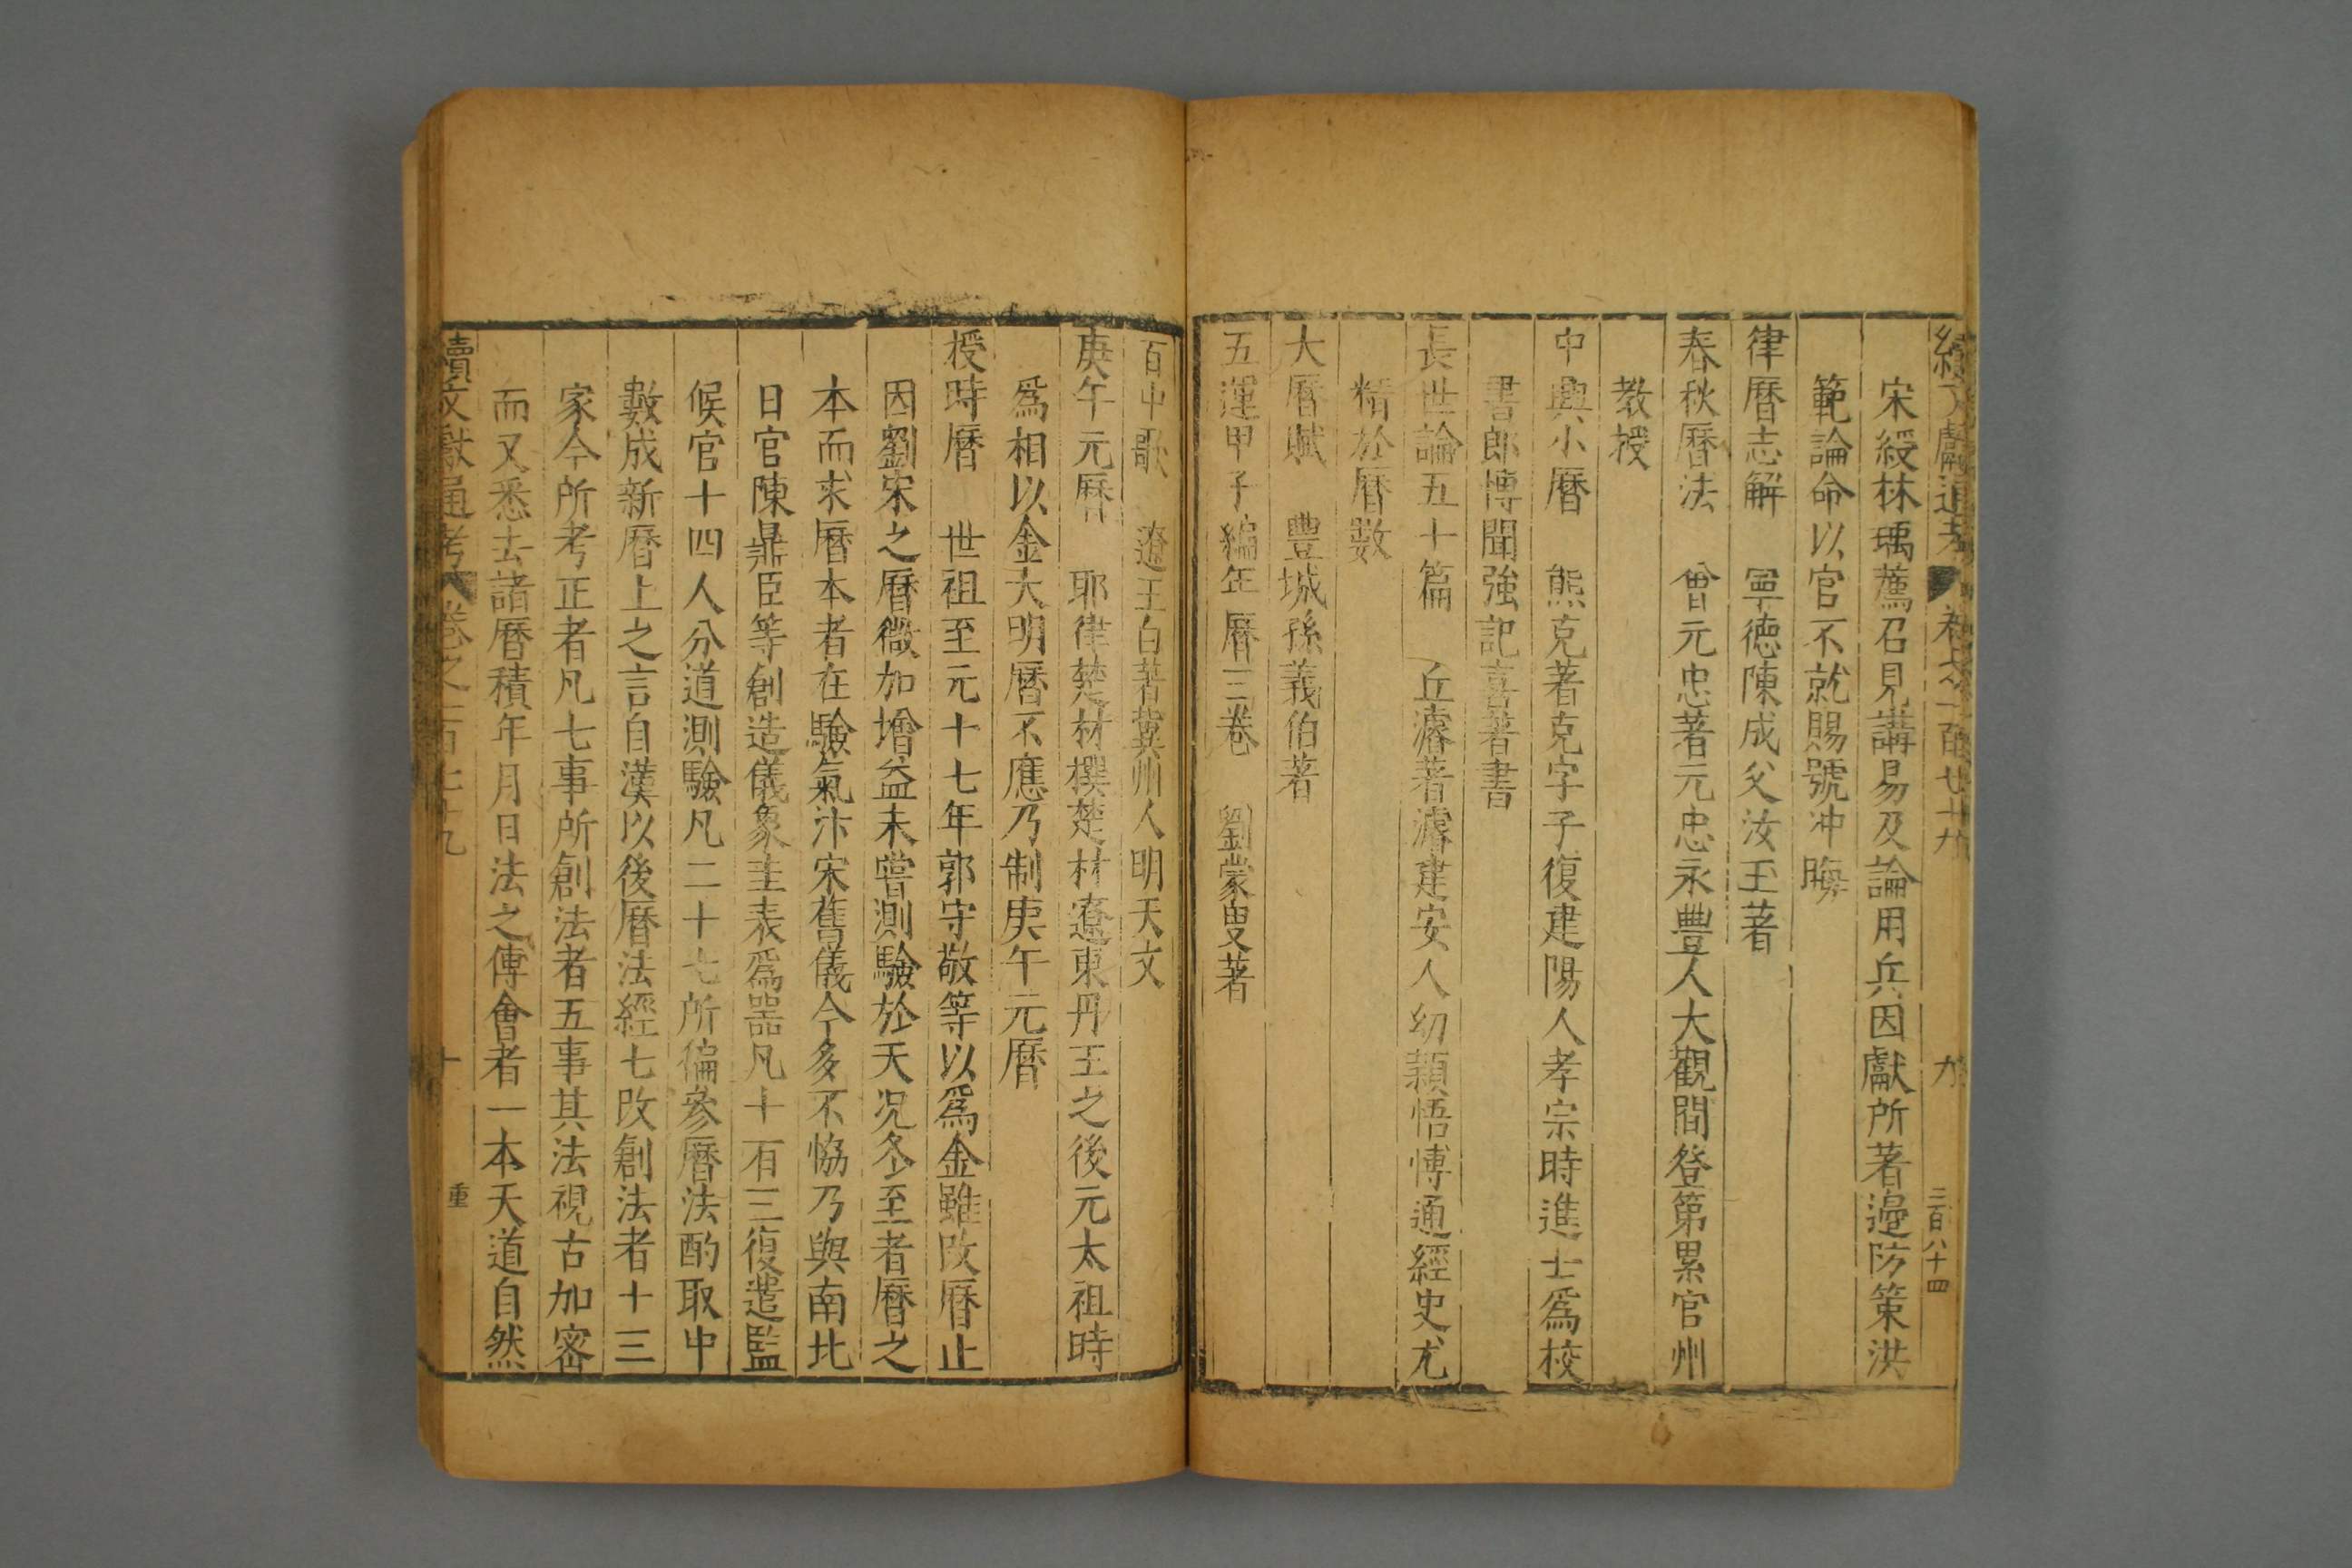 宋綬林瑀薦召見講易及論用兵因獻所著邊防策洪
範論命以官不就賜號冲晦
律曆志解 寧德陳成父汝玉著
春秋曆法 曾元忠著元忠永豐人大觀間登第累官州
教授
中興小曆 熊克著克字子復建陽人孝宗時進士爲校
書郎博聞強記喜著書
長世論五十篇 丘濬著濬建安人幼穎悟博通經史尤
精於曆數
大曆賦 豐城孫義伯著
五運甲子編年曆三卷 劉蒙叟著
百中歌 遼王白著冀州人明天文
庚午元曆 耶律楚材撰楚材遼東丹王之後元太祖時
爲相以金大明曆不應乃制庚午元曆
授時曆 世祖至元十七年郭守敬等以爲金雖改曆止
因劉宋之曆微加增益未嘗測驗於天況冬至者曆之
本而求曆本者在驗氣汴宋舊儀今多不恊乃與南北
日官陳鼎臣等創造儀象圭表爲器凡十有三復遣監
候官十四人分道測驗凡二十七所徧參曆法酌取中
數成新曆上之言自漢以後曆法經七改創法者十三
家今所考正者凡七事所創法者五事其法視古加密
而又悉去諸曆積年月日法之傳會者一本天道自然
續文獻通考 卷之一百七十九 十 重